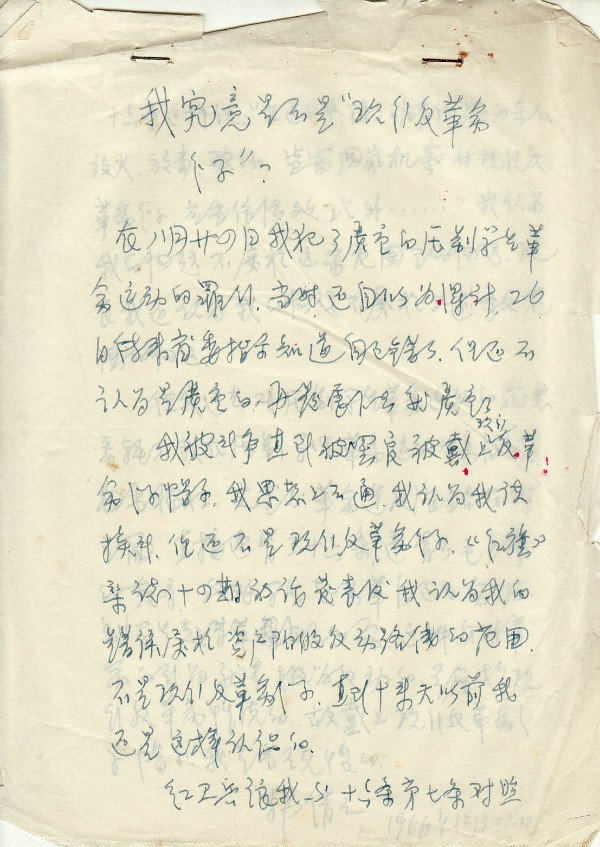 我究竟是不是“现行反革命
分子”?
在八月廿四日我犯了严重的压制学生革
命运动的罪行，当时还自以为得计，26
日传来省委指示知道自己错了，但还不
认为是严重的，再发展下去就严重了
我被斗争直到被罢官被戴上现行反革
命分子帽子，我思想上不通，我认为我该
挨斗，但还不是现行反革命分子，《红旗》
杂志十四期社论发表后我认为我的
错误属于资产阶级反动路线的范围，
不是现行反革命分子，直到十来天以前我
还是这样认识的。
红卫兵让我与十六条第七条对照